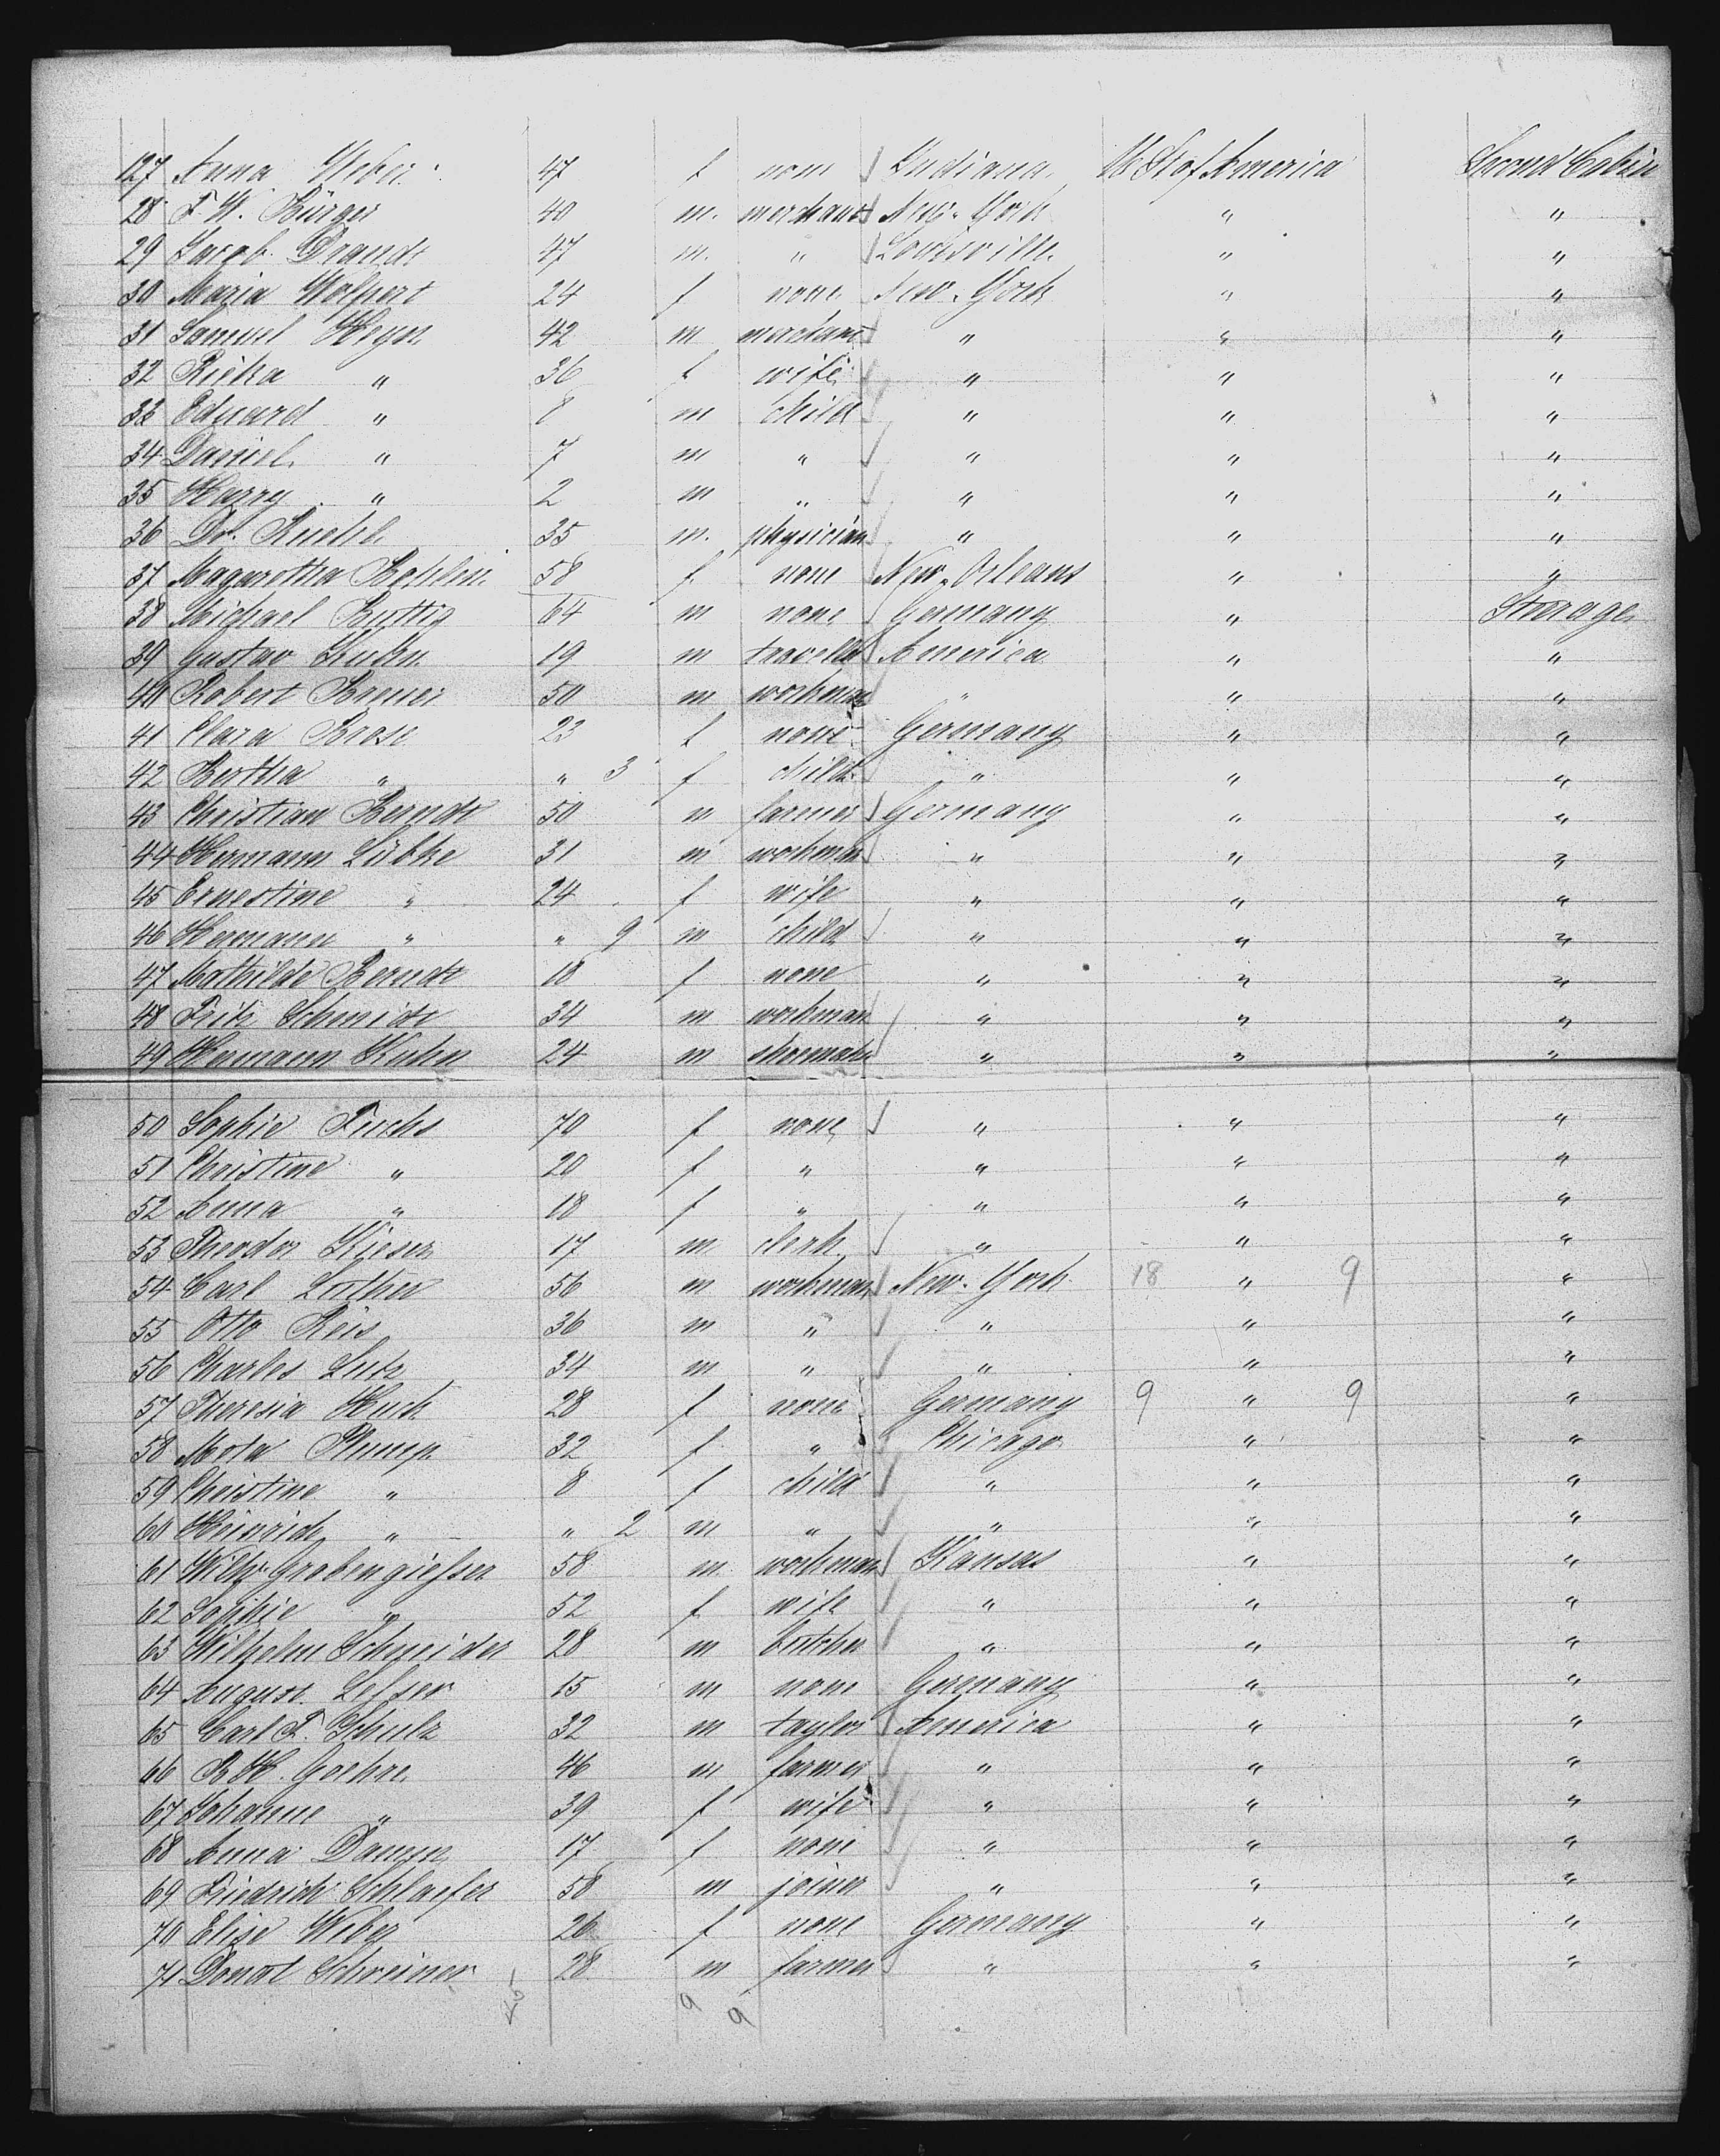 127 Anna Weber 47 f none Indiana U St of America Second Cabin
28 F. W. Bürger 40 m. merchant New-York " "
29 Jacob Brandt 47 m. " Louisville " "
30 Maria Wolpert 24 f none New-York " "
31 Samuel Heyn 42 m merchant " " "
32 Rieka " 36 f wife " " "
33 Eduard " 8 m child " " "
34 Daniel " 7 m " " " "
35 Harry " 2 m " " " "
36 Dr. 35 m. physician " " "
37 Magaretha 58 f none New-Orleans " "
38 Michael Buttig 64 m none Germany " Steerage
39 Gustav Kuhn 19 m traveller America " "
40 Robert 50 m workman " " "
41 Clara Brose 23 f none Germany " "
42 Bertha " " 3 f child " " "
43 Christian Berndt 50 m farmer Germany " "
44 Hermann Lübke 31 m workman " " "
45 Ernestine " 24 f wife " " "
46 Hermann " " 9 m child " " "
47 Mathilde Berndt 18 f none " " "
48 Fritz Schmidt 34 m workman " " "
49 Hermann Kuhn 24 m shoemaker " " "
50 Sophie Fuchs 70 f none " " "
51 Christine " 20 f " " " "
52 Anna " 18 f " " " "
53 Theodor Kieser 17 m clerk " " "
54 Carl Lother 56 m workman New-York 18 " 9 "
55 Otto Reis 36 m " " " "
56 Charles Lutz 34 m " " " "
57 Theresia Huck 28 f none Germany 9 " 9 "
58 Meta Plump 32 f " Chicago " "
59 Christine " 8 f child " " "
60 Heinrich " " 2 m " " " "
61 Wilh. Grobengießer 58 m workman Kansas " "
62 Sophie " 52 f wife " " "
63 Wilhelm Schneider 28 m butcher " " "
64 August Lesser 15 m none Germany " "
65 Carl F. Schulz 32 m taylor America " "
66 B. H. Goehre 46 m farmer " " "
67 Johanne " 39 f wife " " "
68 Anna Damm 17 f none " " "
69 Friedrich Schlaefer 58 m joiner " " "
70 Elise Weber 26 f none Germany " "
71 Donat Schreiner 28 m farmer " " "
9 9